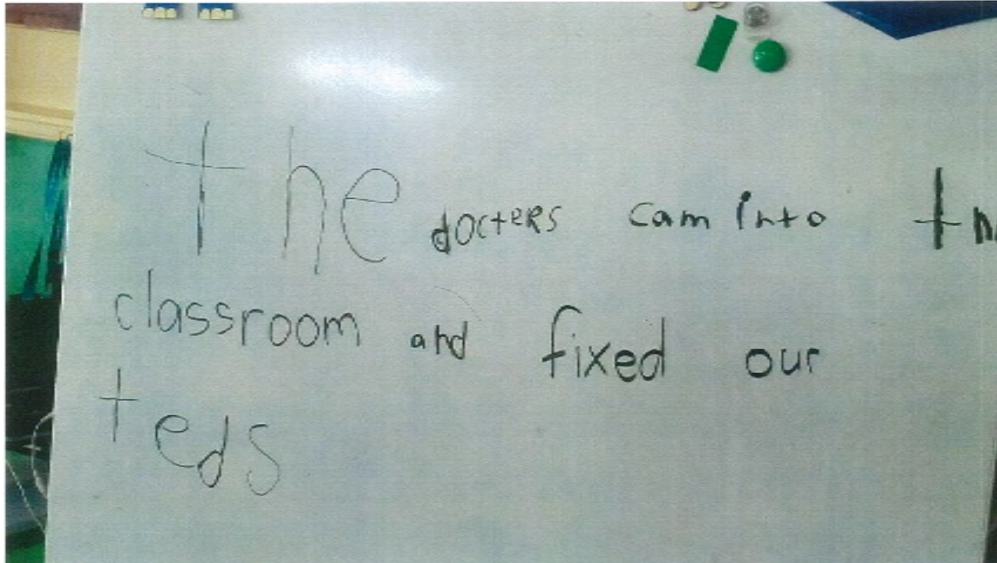 the docters cam into th
classroom and fixed our
teds